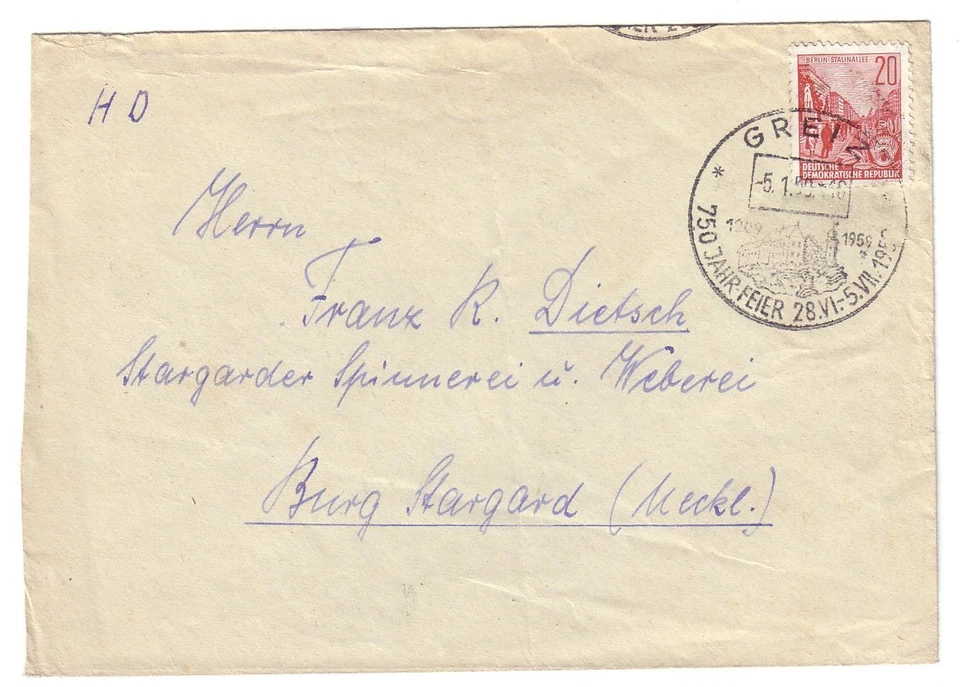 BERLIN-STALINALLEE
20
DEUTSCHE
DEMOKRATISCHE REPUBLIK
H D
GREIZ
-5.1.59
1209
1959
750 JAHR FEIER 28.VI.-5.VII.195
Herrn
Franz K. Dietsch
Stargarder Spinnerei u. Weberei
Burg Stargard (Meckl.)